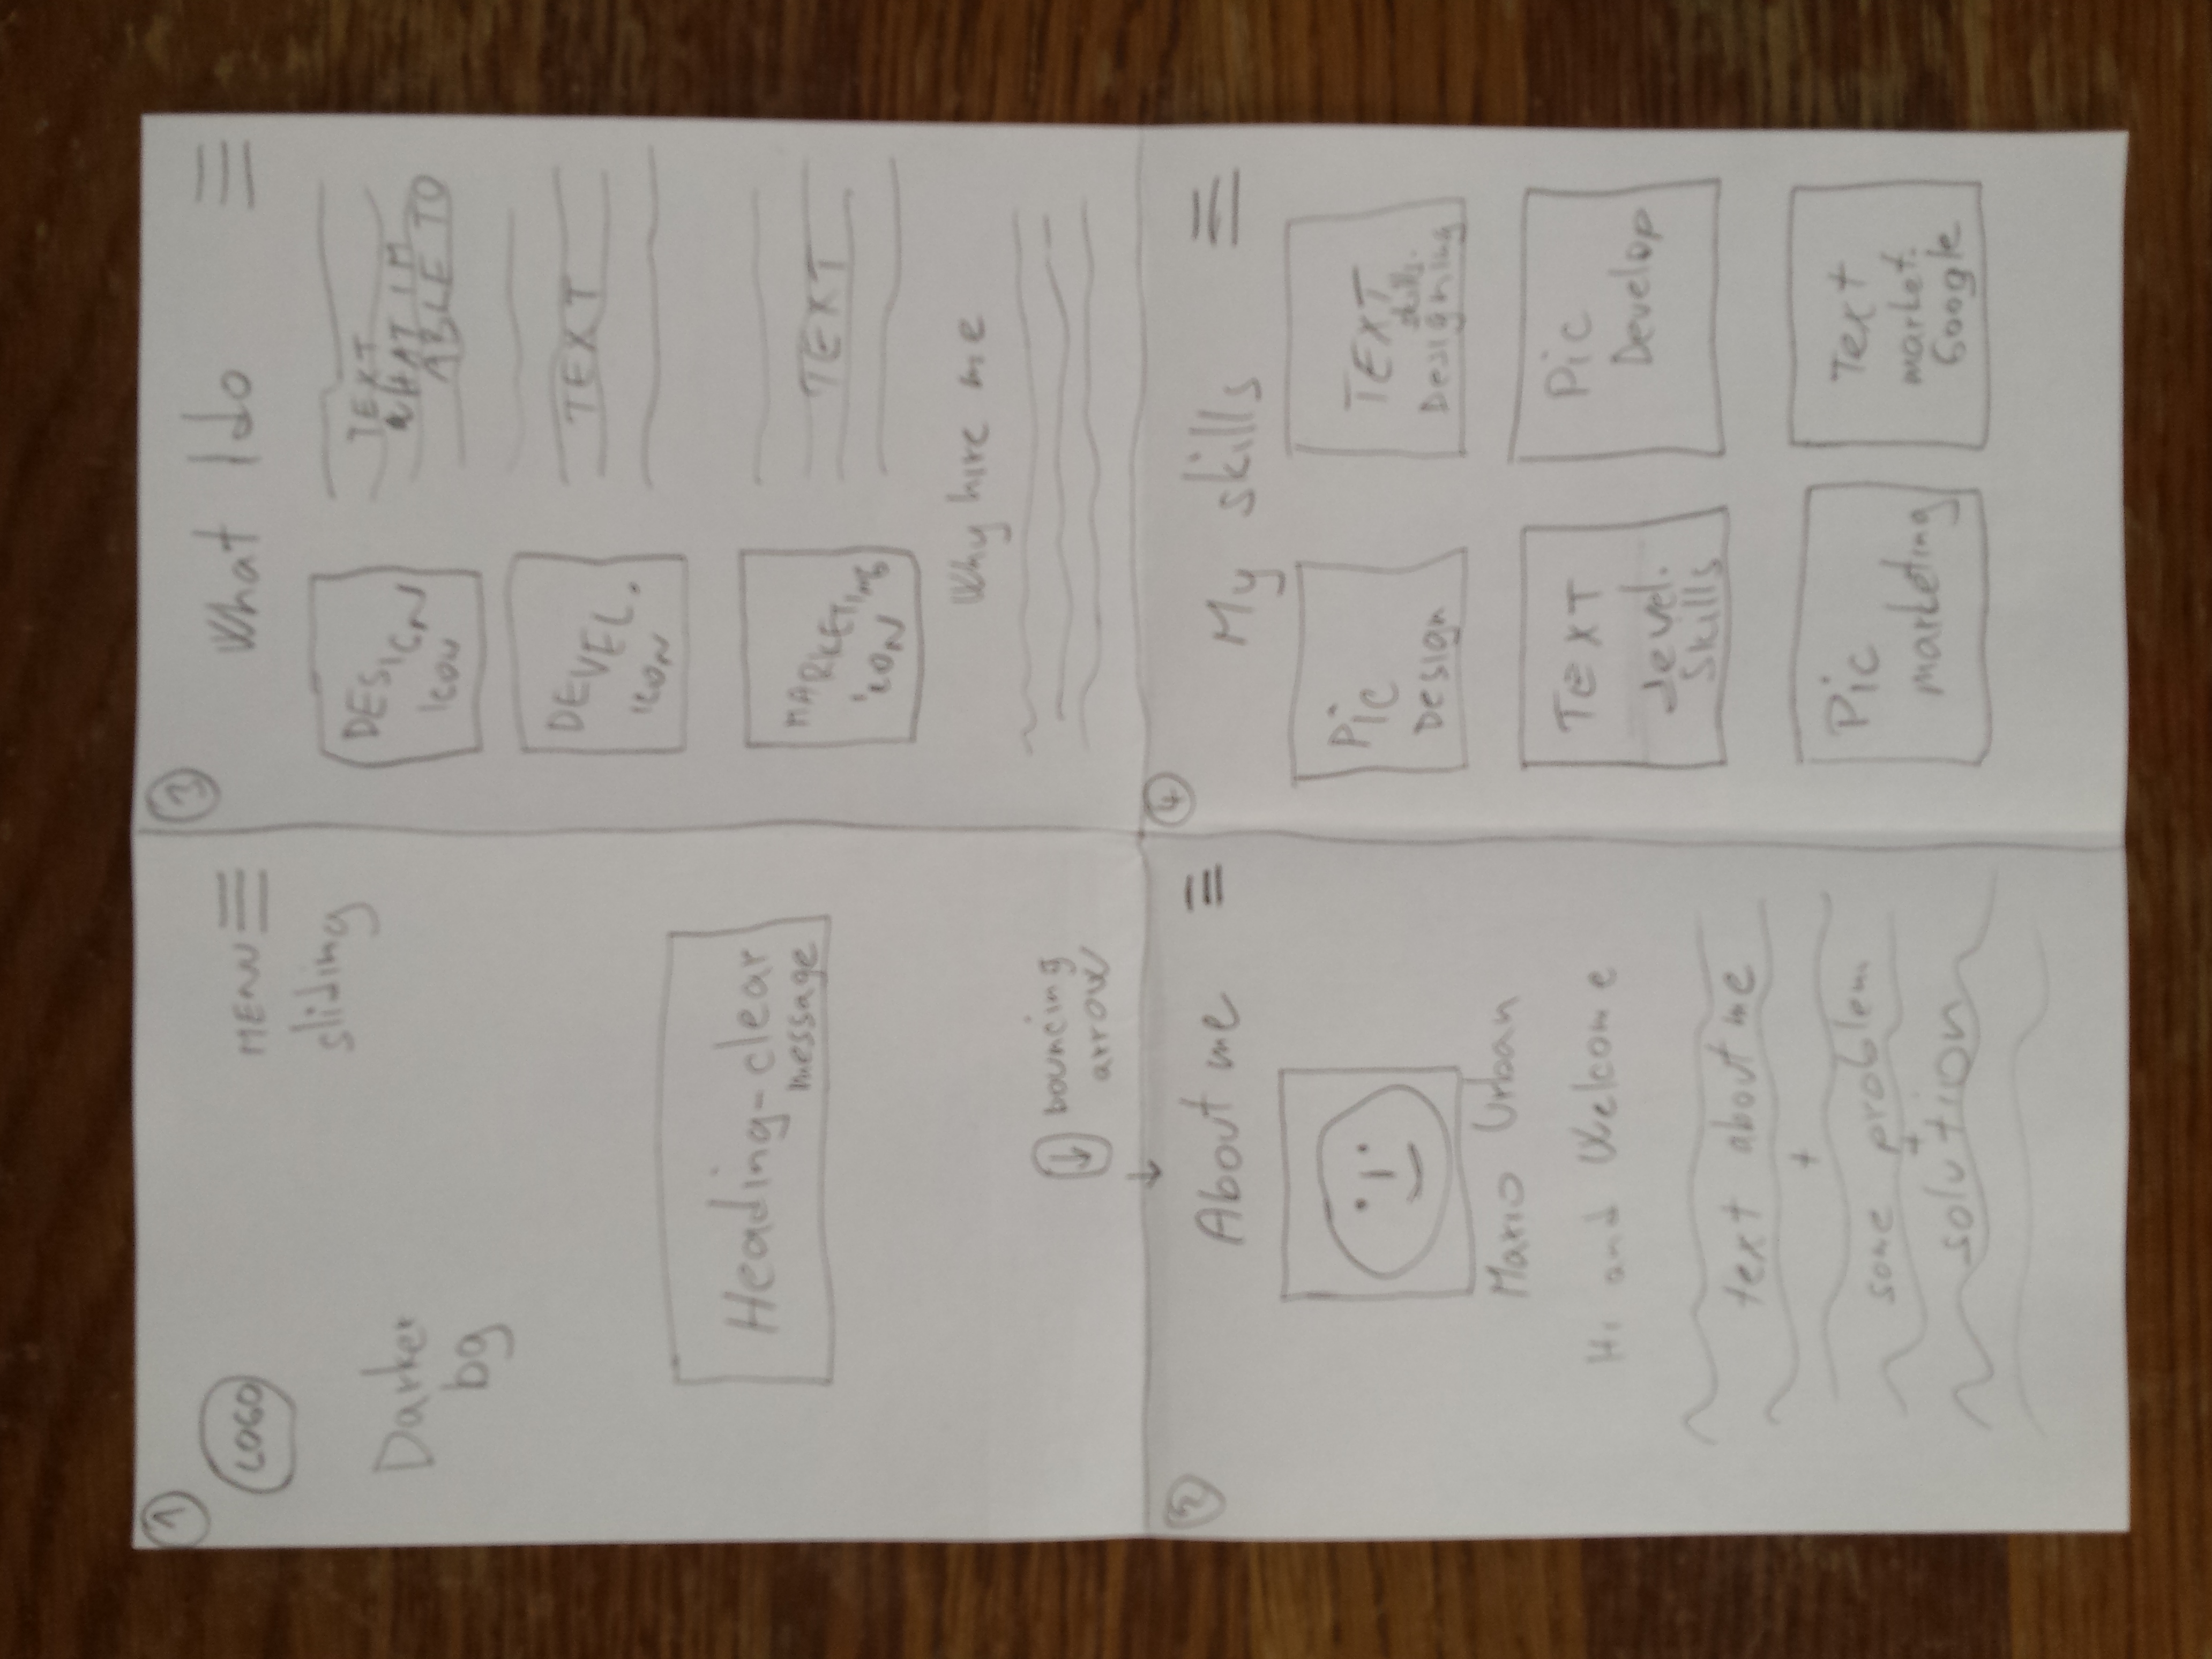 1
LOGO
MENU
sliding
Darker
bg
Heading-clear
message
bouncing
arrow
2
About me
Mario Urban
Hi and Welcome
text about me
+
some problem
+
solution
3
What I do
DESIGN
Icon
TEXT
WHAT IM
ABLE TO
DEVEL.
ICON
TEXT
MARKETING
ICON
TEXT
Why hire me
4
My skills
Pic
Design
TEXT
skills.
Designing
TEXT
devel.
Skills
Pic
Develop
Pic
marketing
Text
market.
Google